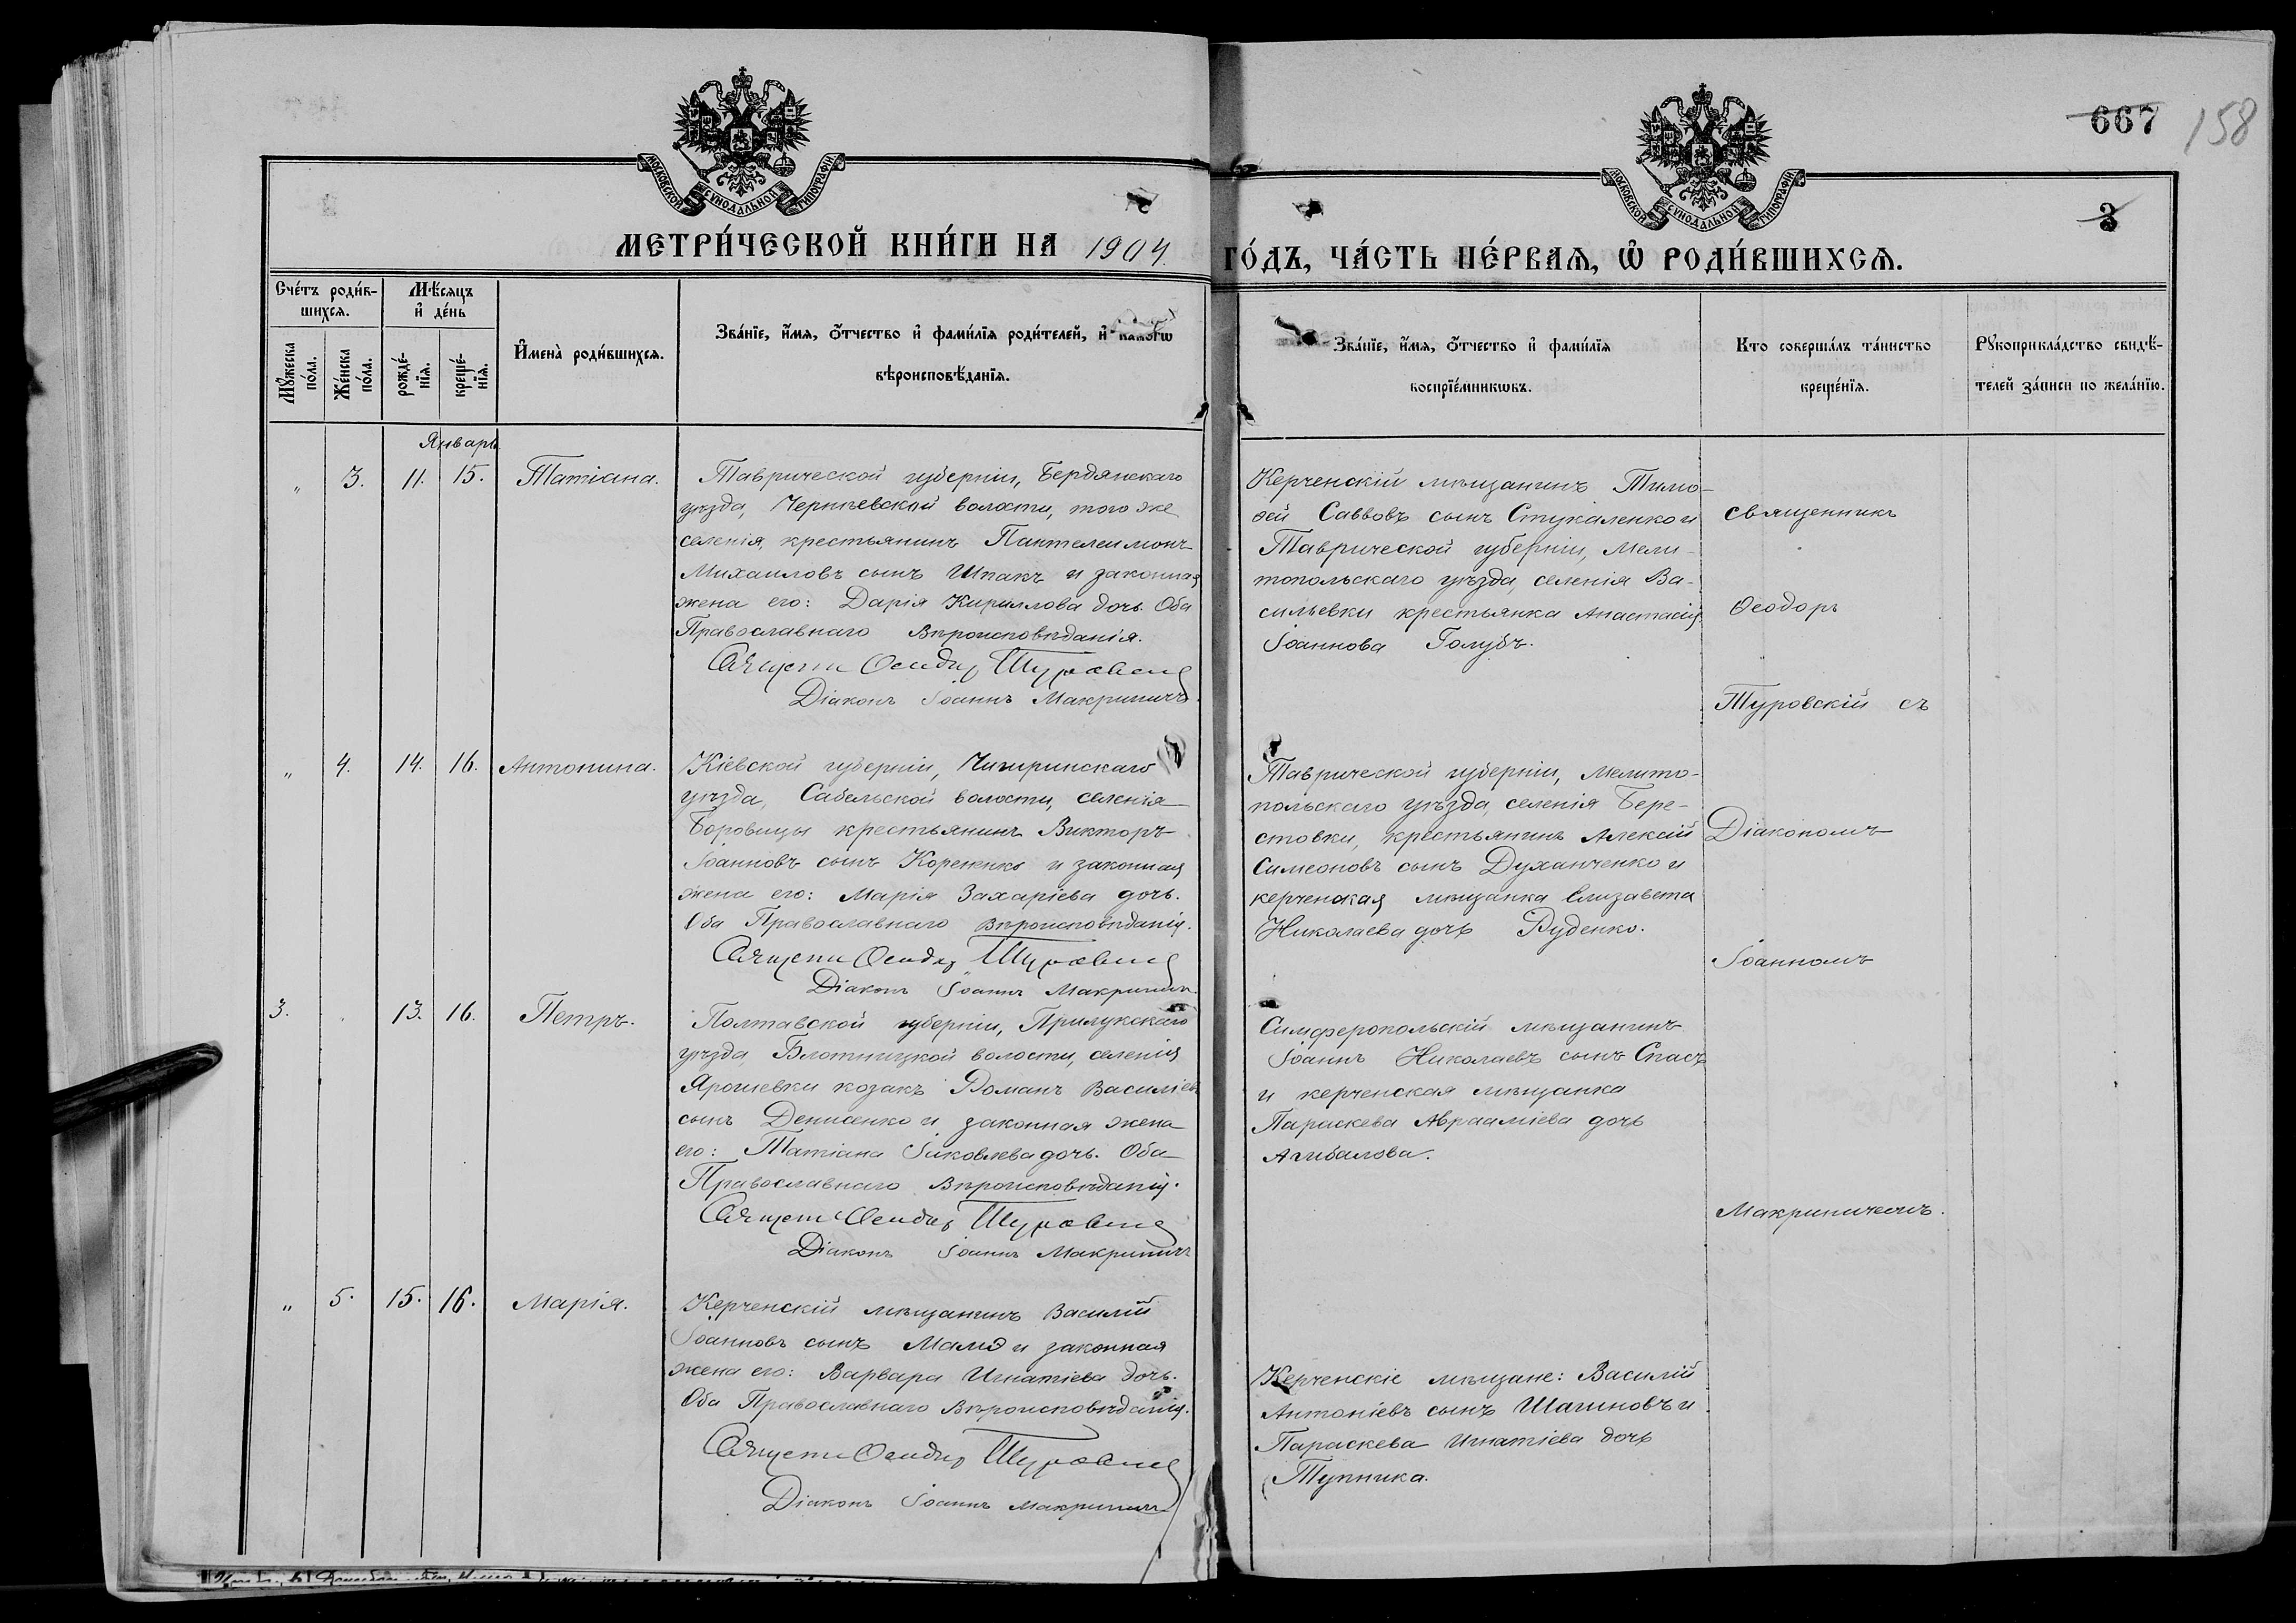 667 158
МОСКОВСКОЙ СѴНОДАЛЬНОЙ ТИПОГРАФІИ
МОСКОВСКОЙ СѴНОДАЛЬНОЙ ТИПОГРАФІИ
3
МЕТРИ́ЧЕСКОЙ КНИ́ГИ НА 1904. ГО́ДЪ, ЧА́СТЬ ПЕ́РВАѦ, Ѿ РОДИ́ВШИХСѦ.
Сче́тъ роди́вшихсѧ.
Мꙋ́жеска по́ла.
Же́нска по́ла.
Мѣ́сѧцъ и҆ де́нь
рожде́нїѧ.
креще́нїѧ.
И҆мена̀ роди́вшихсѧ.
Зва́нїе, и҆́мѧ, ѻ҆́тчество и҆ фами́лїѧ роди́телей, и҆ какогѡ
вѣроисповѣ́данїѧ.
Зва́нїе, и҆́мѧ, ѻ҆́тчество и҆ фами́лїѧ
воспрїе́мникѡвъ.
Кто соверша́лъ та́инство
креще́нїѧ.
Рꙋкоприкла́дство свидѣ́-
телей за́писи по жела́нїю.
Январь
" 3. 11. 15. Татіана.
Таврической губерніи, Бердянскаго
уѣзда, Черніевской волости, того же
селенія, крестьянинъ Пантелеимонъ
Михаиловъ сынъ Шпакъ и законная
жена его: Дарія Кириллова дочь. Оба
Православнаго Вѣроисповѣданія.
Діаконъ Іоаннъ Макриничъ.
Керченскій мѣщанинъ Тимо-
ѳей Саввовъ сынъ Стукаленко и
Таврической губерніи, Мели-
топольскаго уѣзда, селенія Ва-
сильевки крестьянка Анастасія
Іоаннова Голубъ.
священникъ
Ѳеодоръ
Туровскій съ
" 4. 14. 16. Антонина.
Кіевской губерніи, Чигиринскаго
уѣзда, Сабельской волости, селенія
Боровицы крестьянинъ Викторъ
Іоанновъ сынъ Корененко и законная
жена его: Марія Захаріева дочь.
Оба Православнаго Вѣроисповѣданія.
Діаконъ Іоаннъ Макриничъ.
Таврической губерніи, Мелито-
польскаго уѣзда, селенія Бере-
стовки, крестьянинъ Алексій
Симеоновъ сынъ Духанченко и
керченская мѣщанка Елизавета
Николаева дочь Руденко.
Діакономъ
Іоанномъ
3. 13. 16. Петръ.
Полтавской губерніи, Прилукскаго
уѣзда, Блотницкой волости, селенія
Ярошевки козакъ Романъ Василіевъ
сынъ Денисенко и законная жена
его: Татіана Іаковлева дочь. Оба
Православнаго Вѣроисповѣданія.
Діаконъ Іоаннъ Макриничъ
Симферопольскій мѣщанинъ
Іоаннъ Николаевъ сынъ Спасъ
и керченская мѣщанка
Параскева Авраамиева дочь
Агибалова.
Макриничемъ.
" 5. 15. 16. Марія.
Керченскій мѣщанинъ Василій
Іоанновъ сынъ Мамэ и законная
жена его: Варвара Игнатіева дочь.
Оба Православнаго Вѣроисповѣданія.
Діаконъ Іоаннъ Макриничъ
Керченскіе мѣщане: Василій
Антоніевъ сынъ Шагиновъ и
Параскева Игнатіева дочь
Тупника.